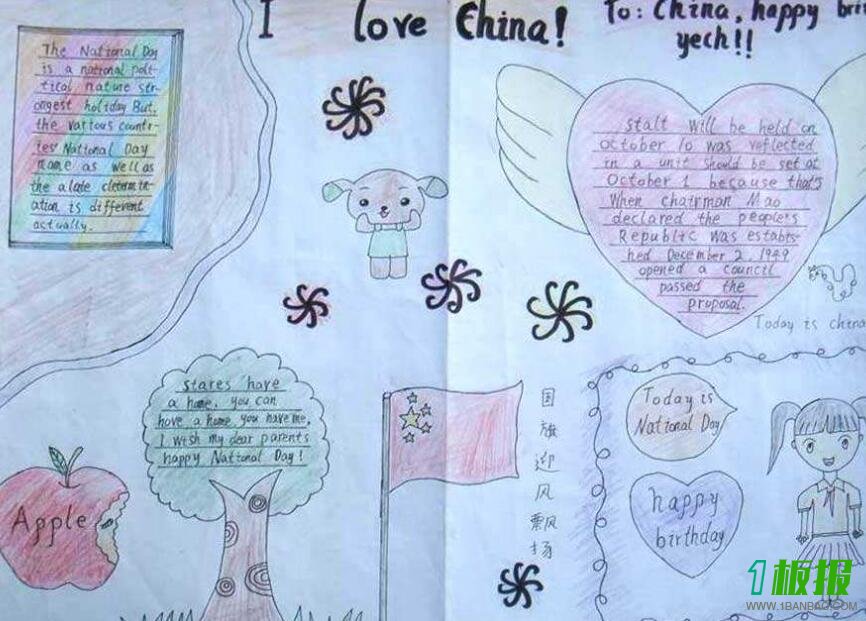 I love China!
To: China, happy bri
yech!!
The National Day
is a national poli-
tical nature str-
ongest holiday But,
the various countr-
ies' National Day
name as well as
the a late determin-
ation is different
actually.
stalt will be held on
october 10 was reflected
in a unit should be set at
October 1 because that's
When chairman Mao
declared the people's
Republic was establs-
hed December 2, 1949
opened a council
passed the
proposal.
Today is china
stares have
a home, you can
have a home you have me,
I wish my dear parents
happy National Day!
Apple
国
旗
迎
风
飘
扬
Today is
National Day
happy
birthday
1板报
WWW.1BANBAO.COM